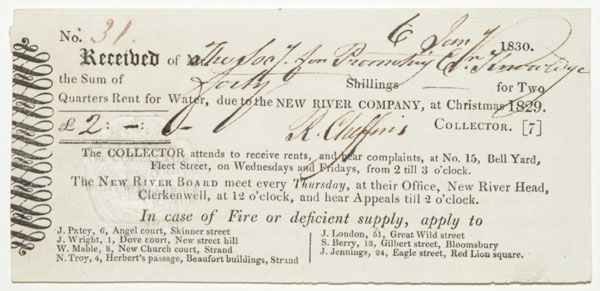 No. 31. 6 Jany. 1830.
Received of The Socy. for Promoting Chn. Knowledge
the Sum of Forty Shillings for Two
Quarters Rent for Water, due to the NEW RIVER COMPANY, at Christmas 1829.
£ 2:-:- R. Cheffins COLLECTOR. [7]
The COLLECTOR attends to receive rents, and hear complaints, at No. 15, Bell Yard,
Fleet Street, on Wednesdays and Fridays, from 2 till 3 o'clock.
The NEW RIVER BOARD meet every Thursday, at their Office, New River Head,
Clerkenwell, at 12 o'clock, and hear Appeals till 2 o'clock.
In case of Fire or deficient supply, apply to
J. Patey, 6, Angel court, Skinner street
J. Wright, 1, Dove court, New street hill
W. Mable, 8, New Church court, Strand
N. Troy, 4, Herbert's passage, Beaufort buildings, Strand
J. London, 51, Great Wild street
S. Berry, 13, Gilbert street, Bloomsbury
J. Jennings, 24, Eagle street, Red Lion square.